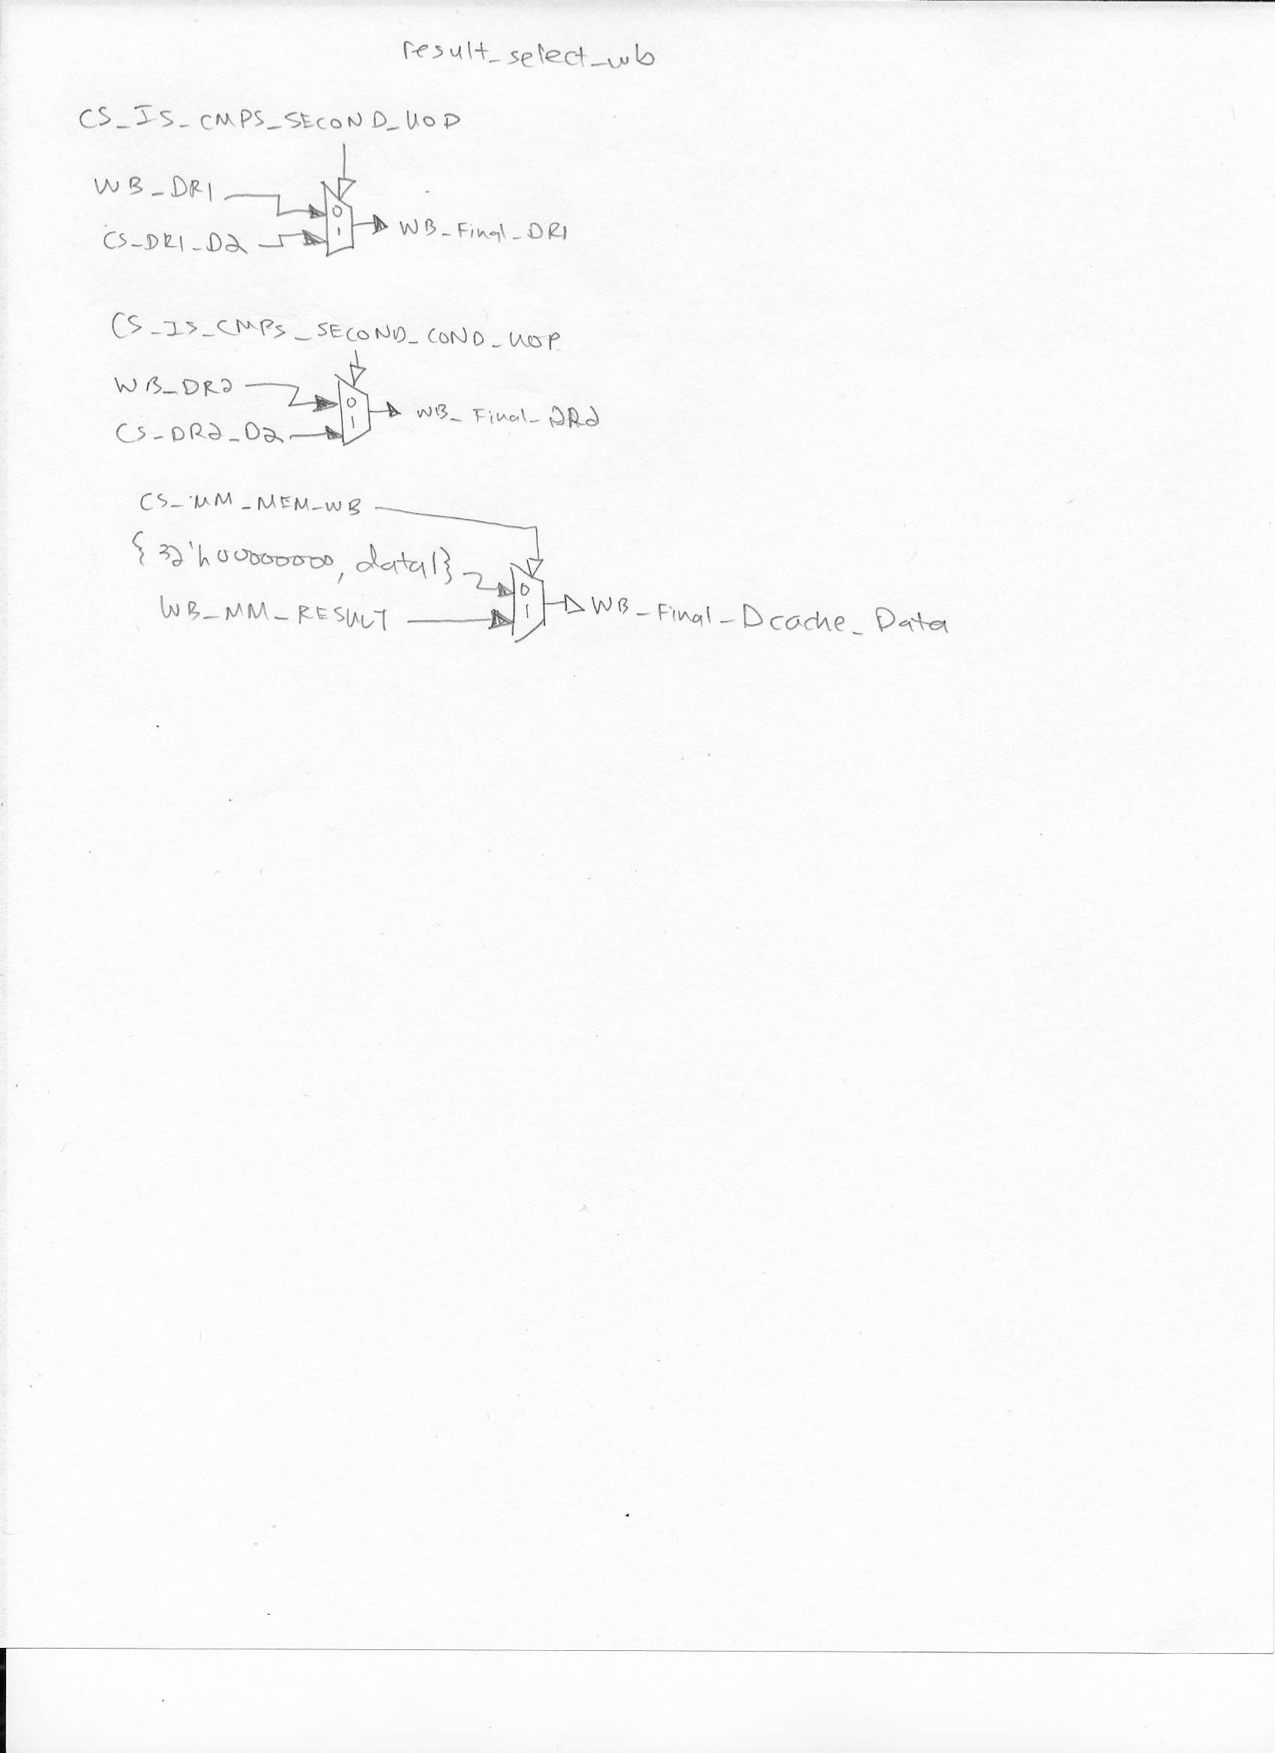 result_select_wb
CS_IS_CMPS_SECOND_UOP
WB_DR1
0
CS_DR1_D2
1
WB_Final_DR1
CS_IS_CMPS_SECOND_COND_UOP
WB_DR2
0
CS_DR2_D2
1
WB_Final_DR2
CS_MM_MEM_WB
{32'h00000000, data1}
0
WB_MM_RESULT
1
WB_Final_Dcache_Data